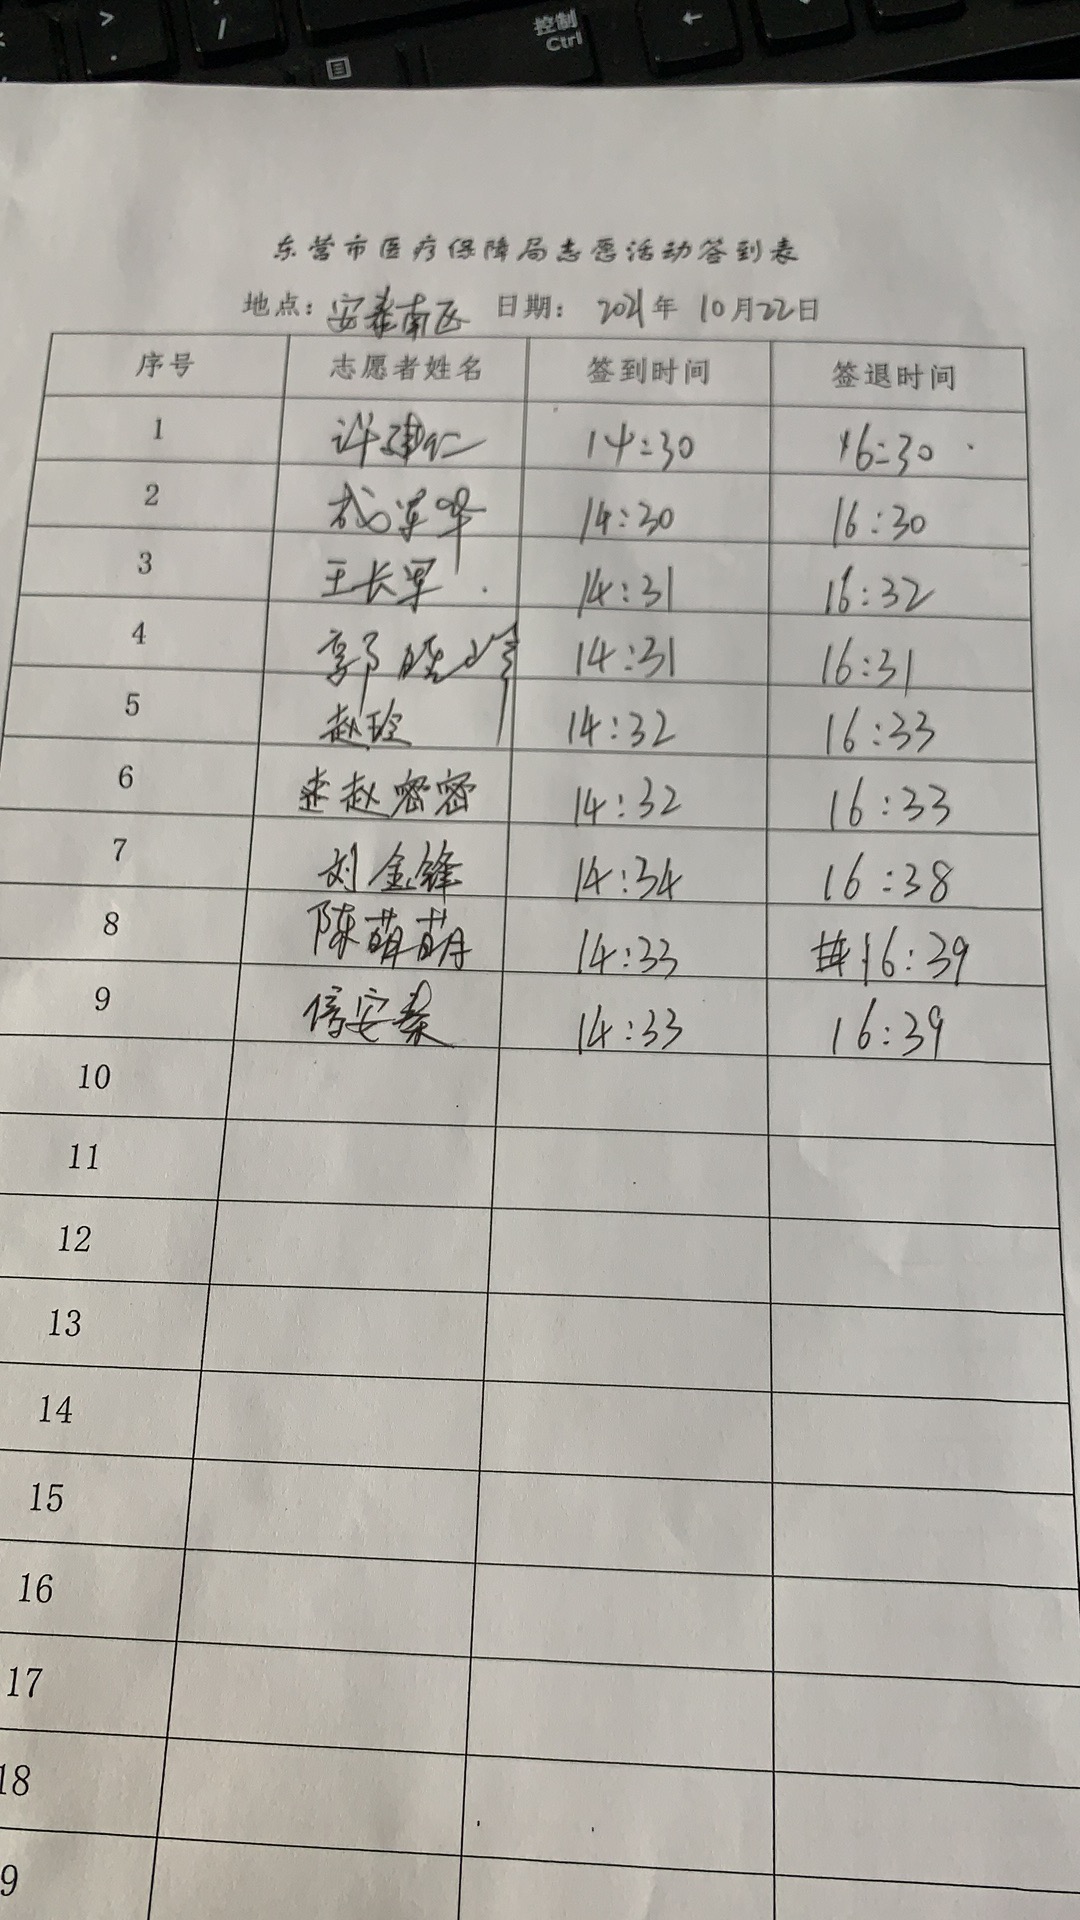 控制
Ctrl
东营市医疗保障局志愿活动签到表
地点：安泰南区 日期： 2021年 10月22日
序号 志愿者姓名 签到时间 签退时间
1 许建仁 14:30 16:30
2 14:30 16:30
3 王长军 14:31 16:32
4 郭晓峰 14:31 16:31
5 赵玲 14:32 16:33
6 赵密密 14:32 16:33
7 刘金锋 14:34 16:38
8 陈萌萌 14:33 16:39
9 14:33 16:39
10
11
12
13
14
15
16
17
18
9